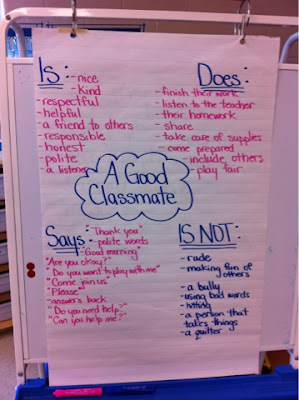 Is:
- nice
- kind
- respectful
- helpful
- a friend to others
- responsible
- honest
- polite
- a listener
Does:
- finish their work
- listen to the teacher
- their homework
- share
- take care of supplies
- come prepared
- include others
- play fair
A Good
Classmate
Says:
"Thank you"
- polite words
"Good morning"
"Are you okay?"
"Do you want to play with me"
"Come join us"
"Please"
- answers back
"Do you need help?"
"Can you help me?"
IS NOT:
- rude
- making fun of
others
- a bully
- using bad words
- hitting
- a person that
takes things
- a quitter